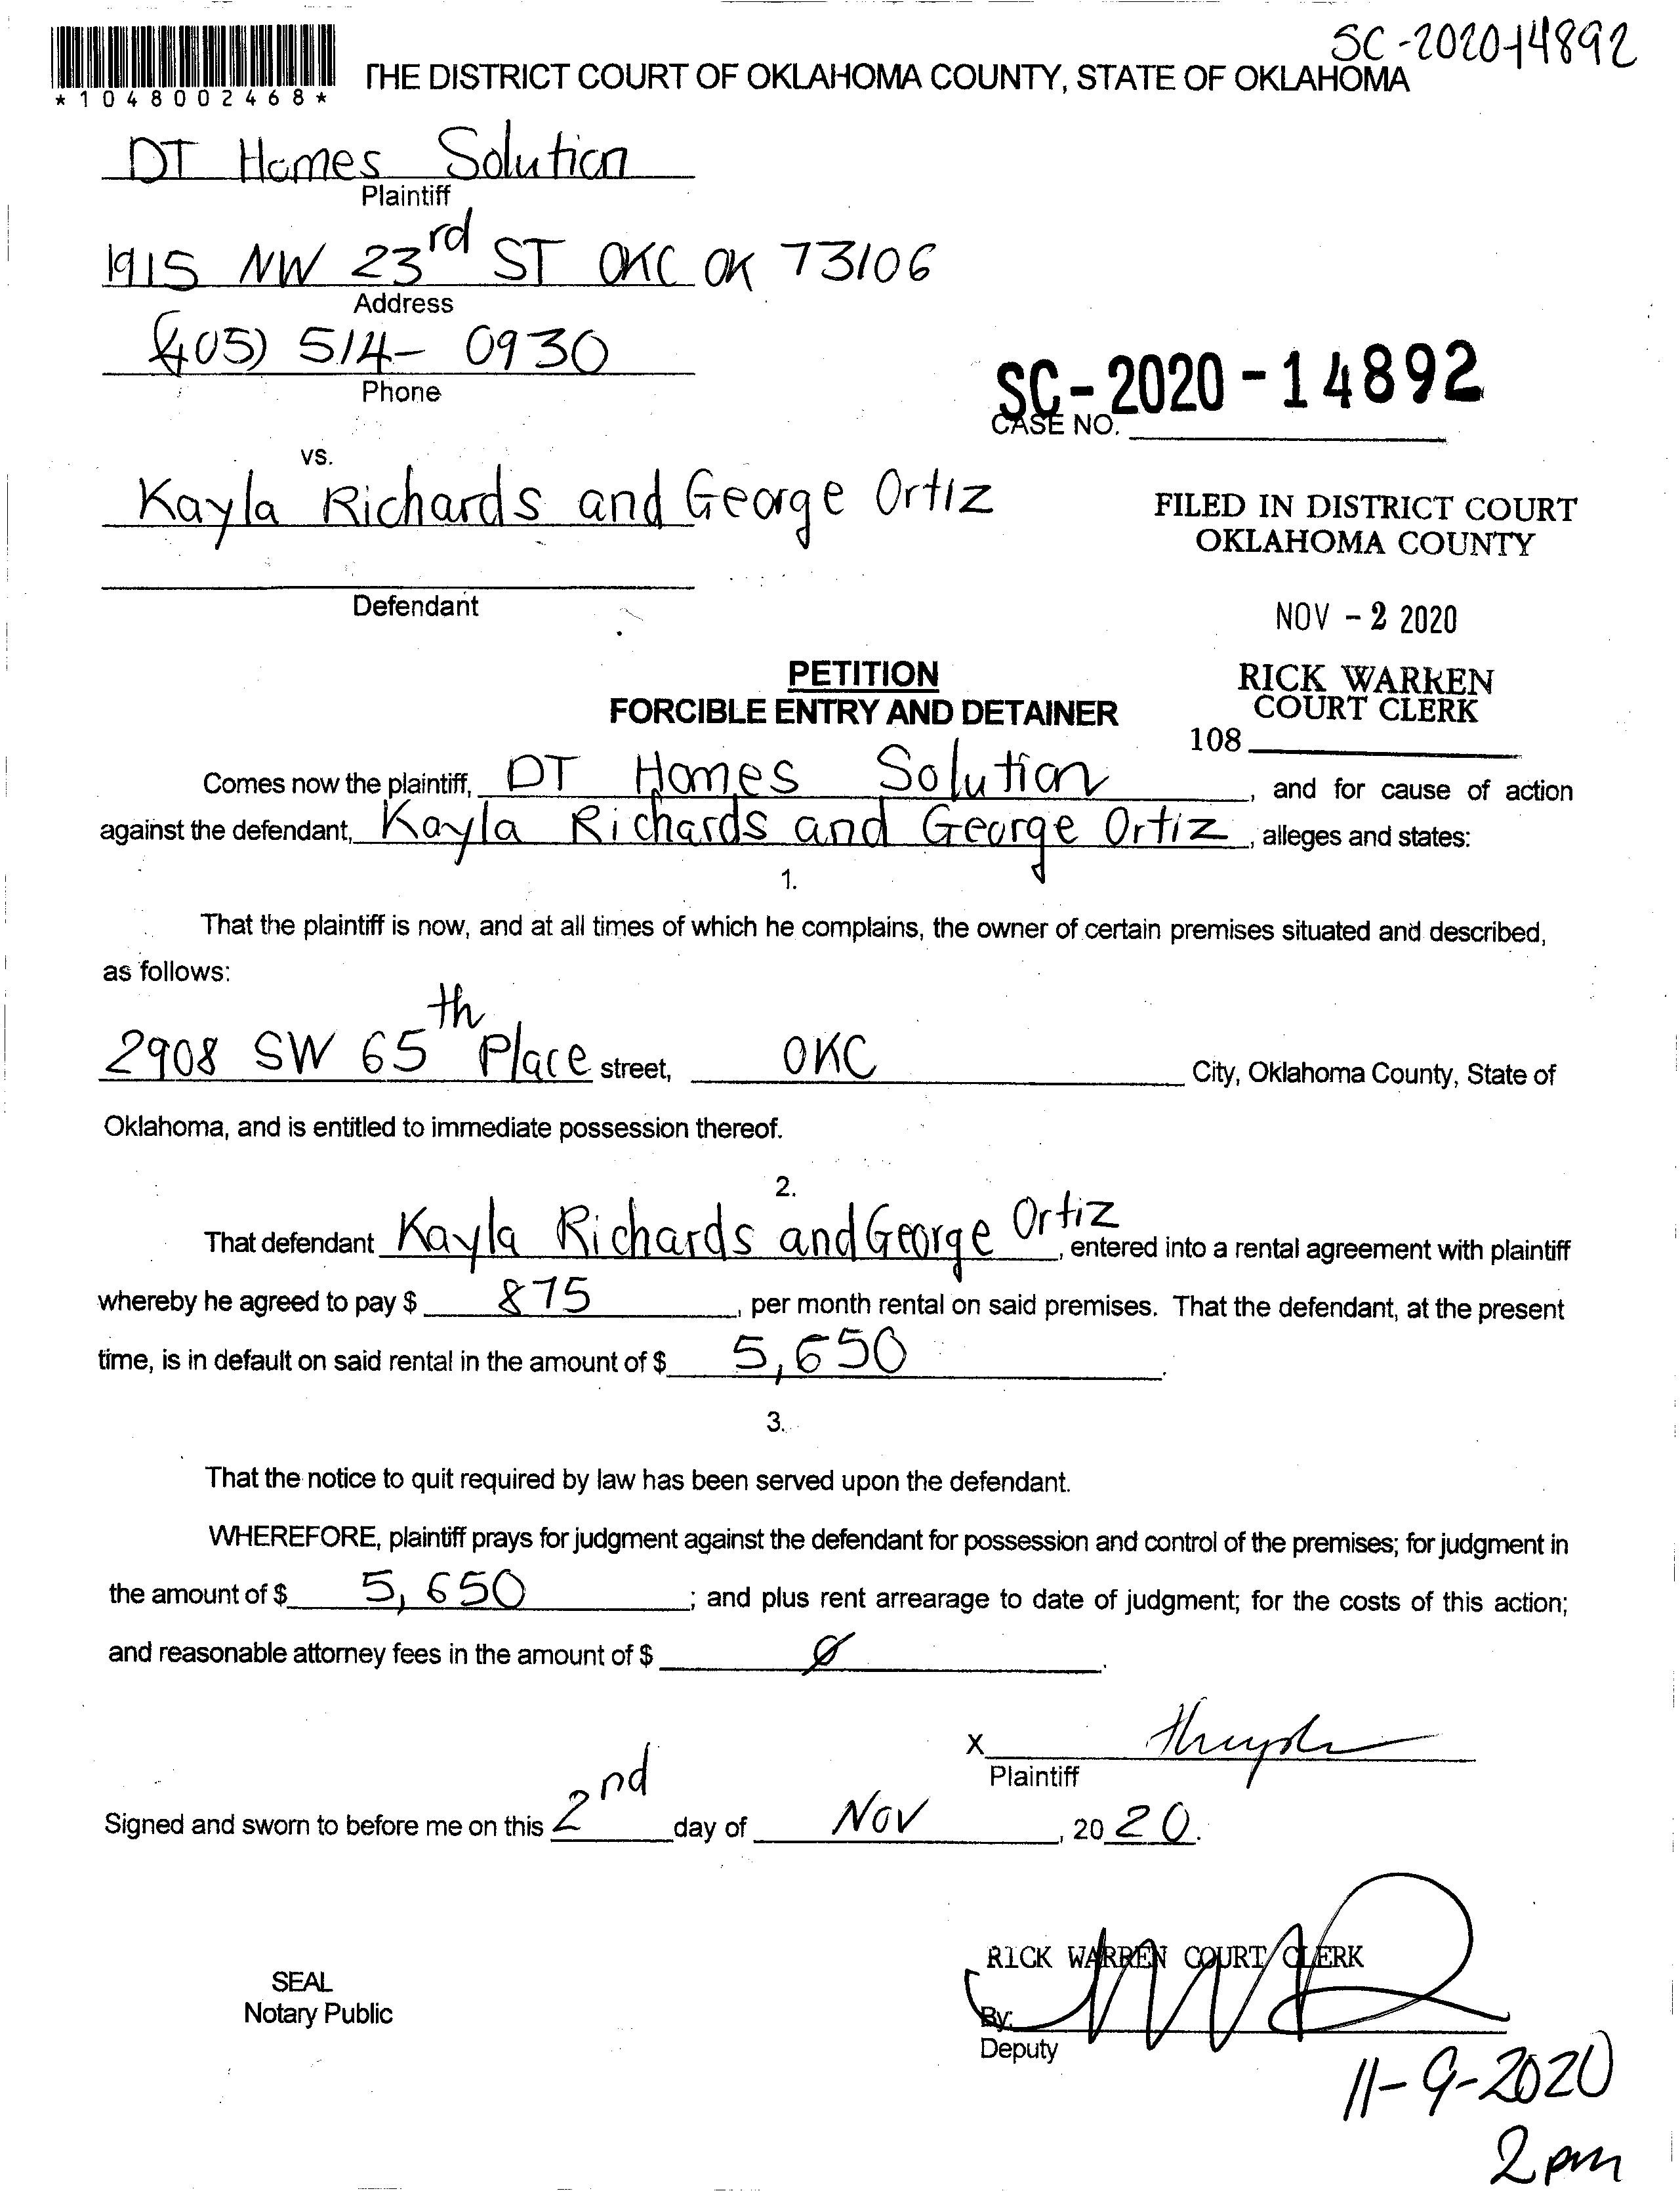 SC-2020-14892
THE DISTRICT COURT OF OKLAHOMA COUNTY, STATE OF OKLAHOMA
*1048002468*
DT Homes Solution
Plaintiff
1915 NW 23rd ST OKC OK 73106
Address
(405) 514-0930
Phone
SC-2020-14892
CASE NO.
vs.
Kayla Richards and George Ortiz
FILED IN DISTRICT COURT
OKLAHOMA COUNTY
Defendant
NOV - 2 2020
PETITION
FORCIBLE ENTRY AND DETAINER
RICK WARREN
COURT CLERK
108
Comes now the plaintiff, DT Homes Solution, and for cause of action
against the defendant, Kayla Richards and George Ortiz, alleges and states:
1.
That the plaintiff is now, and at all times of which he complains, the owner of certain premises situated and described,
as follows:
2908 SW 65th Place street, OKC City, Oklahoma County, State of
Oklahoma, and is entitled to immediate possession thereof.
2.
That defendant Kayla Richards and George Ortiz, entered into a rental agreement with plaintiff
whereby he agreed to pay $ 875, per month rental on said premises. That the defendant, at the present
time, is in default on said rental in the amount of $ 5,650.
3.
That the notice to quit required by law has been served upon the defendant.
WHEREFORE, plaintiff prays for judgment against the defendant for possession and control of the premises; for judgment in
the amount of $ 5,650; and plus rent arrearage to date of judgment; for the costs of this action;
and reasonable attorney fees in the amount of $ Ø.
X
Plaintiff
Signed and sworn to before me on this 2nd day of Nov, 2020.
RICK WARREN COURT CLERK
SEAL
Notary Public
By:
Deputy
11-9-2020
2pm